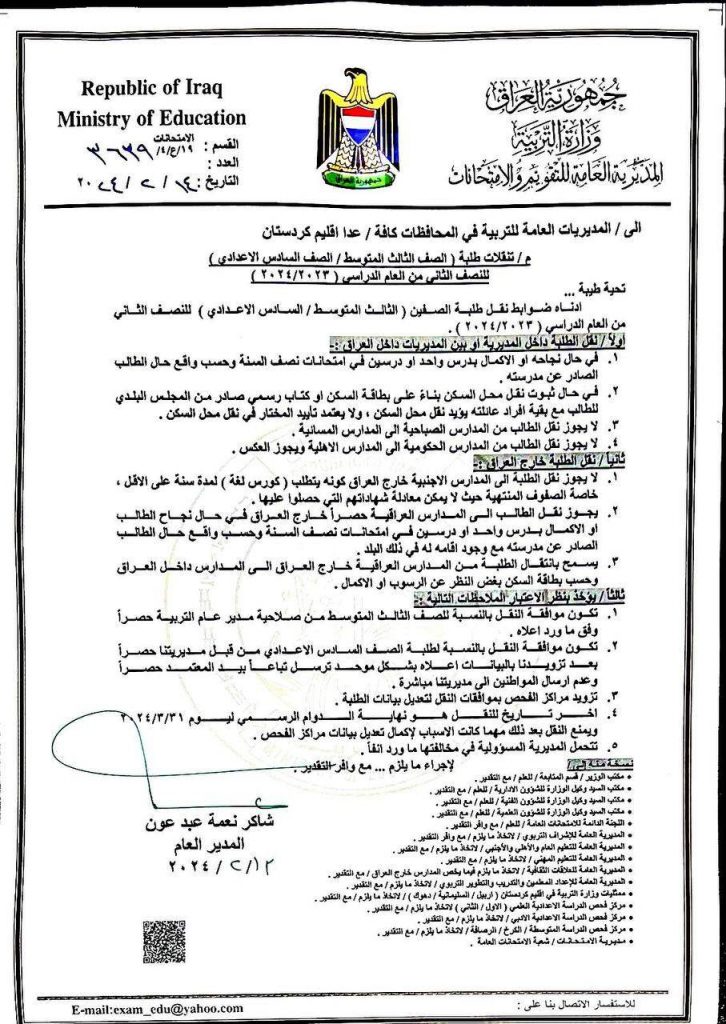 جمهورية العراق
وزارة التربية
المديرية العامة للتقويم والامتحانات
Republic of Iraq
Ministry of Education
القسم : الامتحانات
العدد : ١٩/ع/٤/ ٣٦٣٩
التاريخ : ١٤ / ٢ / ٢٠٢٤
جمهورية العراق
الى / المديريات العامة للتربية في المحافظات كافة / عدا اقليم كردستان
م / تنقلات طلبة ( الصف الثالث المتوسط / الصف السادس الاعدادي )
للنصف الثاني من العام الدراسي ( ٢٠٢٤/٢٠٢٣ )
تحية طيبة ...
ادناه ضوابط نقل طلبة الصفين ( الثالث المتوسط / السادس الاعدادي ) للنصف الثاني
من العام الدراسي ( ٢٠٢٤/٢٠٢٣ ) .
اولاً / نقل الطلبة داخل المديرية او بين المديريات داخل العراق :-
١. في حال نجاحه او الاكمال بدرس واحد او درسين في امتحانات نصف السنة وحسب واقع حال الطالب
الصادر عن مدرسته .
٢. في حال ثبوت نقل محل السكن بناءً على بطاقة السكن او كتاب رسمي صادر من المجلس البلدي
للطالب مع بقية افراد عائلته يؤيد نقل محل السكن ، ولا يعتمد تأييد المختار في نقل محل السكن .
٣. لا يجوز نقل الطالب من المدارس الصباحية الى المدارس المسائية .
٤. لا يجوز نقل الطالب من المدارس الحكومية الى المدارس الاهلية ويجوز العكس .
ثانياً / نقل الطلبة خارج العراق :-
١. لا يجوز نقل الطلبة الى المدارس الاجنبية خارج العراق كونه يتطلب ( كورس لغة ) لمدة سنة على الاقل ،
خاصة الصفوف المنتهية حيث لا يمكن معادلة شهاداتهم التي حصلوا عليها .
٢. يجوز نقل الطالب الى المدارس العراقية حصراً خارج العراق في حال نجاح الطالب
او الاكمال بدرس واحد او درسين في امتحانات نصف السنة وحسب واقع حال الطالب
الصادر عن مدرسته مع وجود اقامه له في ذلك البلد .
٣. يسمح بانتقال الطلبة من المدارس العراقية خارج العراق الى المدارس داخل العراق
وحسب بطاقة السكن بغض النظر عن الرسوب او الاكمال .
ثالثاً / يؤخذ بنظر الاعتبار الملاحظات التالية :-
١. تكون موافقة النقل بالنسبة للصف الثالث المتوسط من صلاحية مدير عام التربية حصراً
وفق ما ورد اعلاه .
٢. تكون موافقة النقل بالنسبة لطلبة الصف السادس الاعدادي من قبل مديريتنا حصراً
بعد تزويدنا بالبيانات اعلاه بشكل موحد ترسل تباعاً بيد المعتمد حصراً
وعدم ارسال المواطنين الى مديريتنا مباشرة .
٣. تزويد مراكز الفحص بموافقات النقل لتعديل بيانات الطلبة .
٤. اخر تاريخ للنقل هو نهاية الدوام الرسمي ليوم ٢٠٢٤/٣/٣١
ويمنع النقل بعد ذلك مهما كانت الاسباب لإكمال تعديل بيانات مراكز الفحص .
٥. تتحمل المديرية المسؤولية في مخالفتها ما ورد انفاً .
لإجراء ما يلزم ... مع وافر التقدير .
شاكر نعمة عبد عون
المدير العام
٢٠٢٤ / ٢ / ١٢
نسخة منه الى /
• مكتب الوزير / قسم المتابعة / للعلم / مع التقدير .
• مكتب السيد وكيل الوزارة للشؤون الادارية / للعلم / مع التقدير .
• مكتب السيد وكيل الوزارة للشؤون الفنية / للعلم / مع التقدير .
• مكتب السيد وكيل الوزارة للشؤون العلمية / للعلم / مع التقدير .
• اللجنة الدائمة للامتحانات العامة / للعلم / مع وافر التقدير .
• المديرية العامة للإشراف التربوي / لاتخاذ ما يلزم / مع وافر التقدير .
• المديرية العامة للتعليم العام والأهلي والأجنبي / لاتخاذ ما يلزم / مع التقدير .
• المديرية العامة للتعليم المهني / لاتخاذ ما يلزم / مع التقدير .
• المديرية العامة للعلاقات الثقافية / لاتخاذ ما يلزم فيما يخص المدارس خارج العراق / مع التقدير .
• المديرية العامة للإعداد المعلمين والتدريب والتطوير التربوي / لاتخاذ ما يلزم / مع التقدير .
• ممثليات وزارة التربية في اقليم كردستان ( اربيل / السليمانية / دهوك ) / لاتخاذ ما يلزم / مع التقدير .
• مركز فحص الدراسة الاعدادية العلمي ( الاول / الثاني ) لاتخاذ ما يلزم / مع التقدير .
• مركز فحص الدراسة الاعدادية الادبي / لاتخاذ ما يلزم / مع التقدير .
• مركز فحص الدراسة المتوسطة / الكرخ / الرصافة / لاتخاذ ما يلزم / مع التقدير .
• مديرية الامتحانات / شعبة الامتحانات العامة .
للاستفسار الاتصال بنا على :
E-mail:exam_edu@yahoo.com